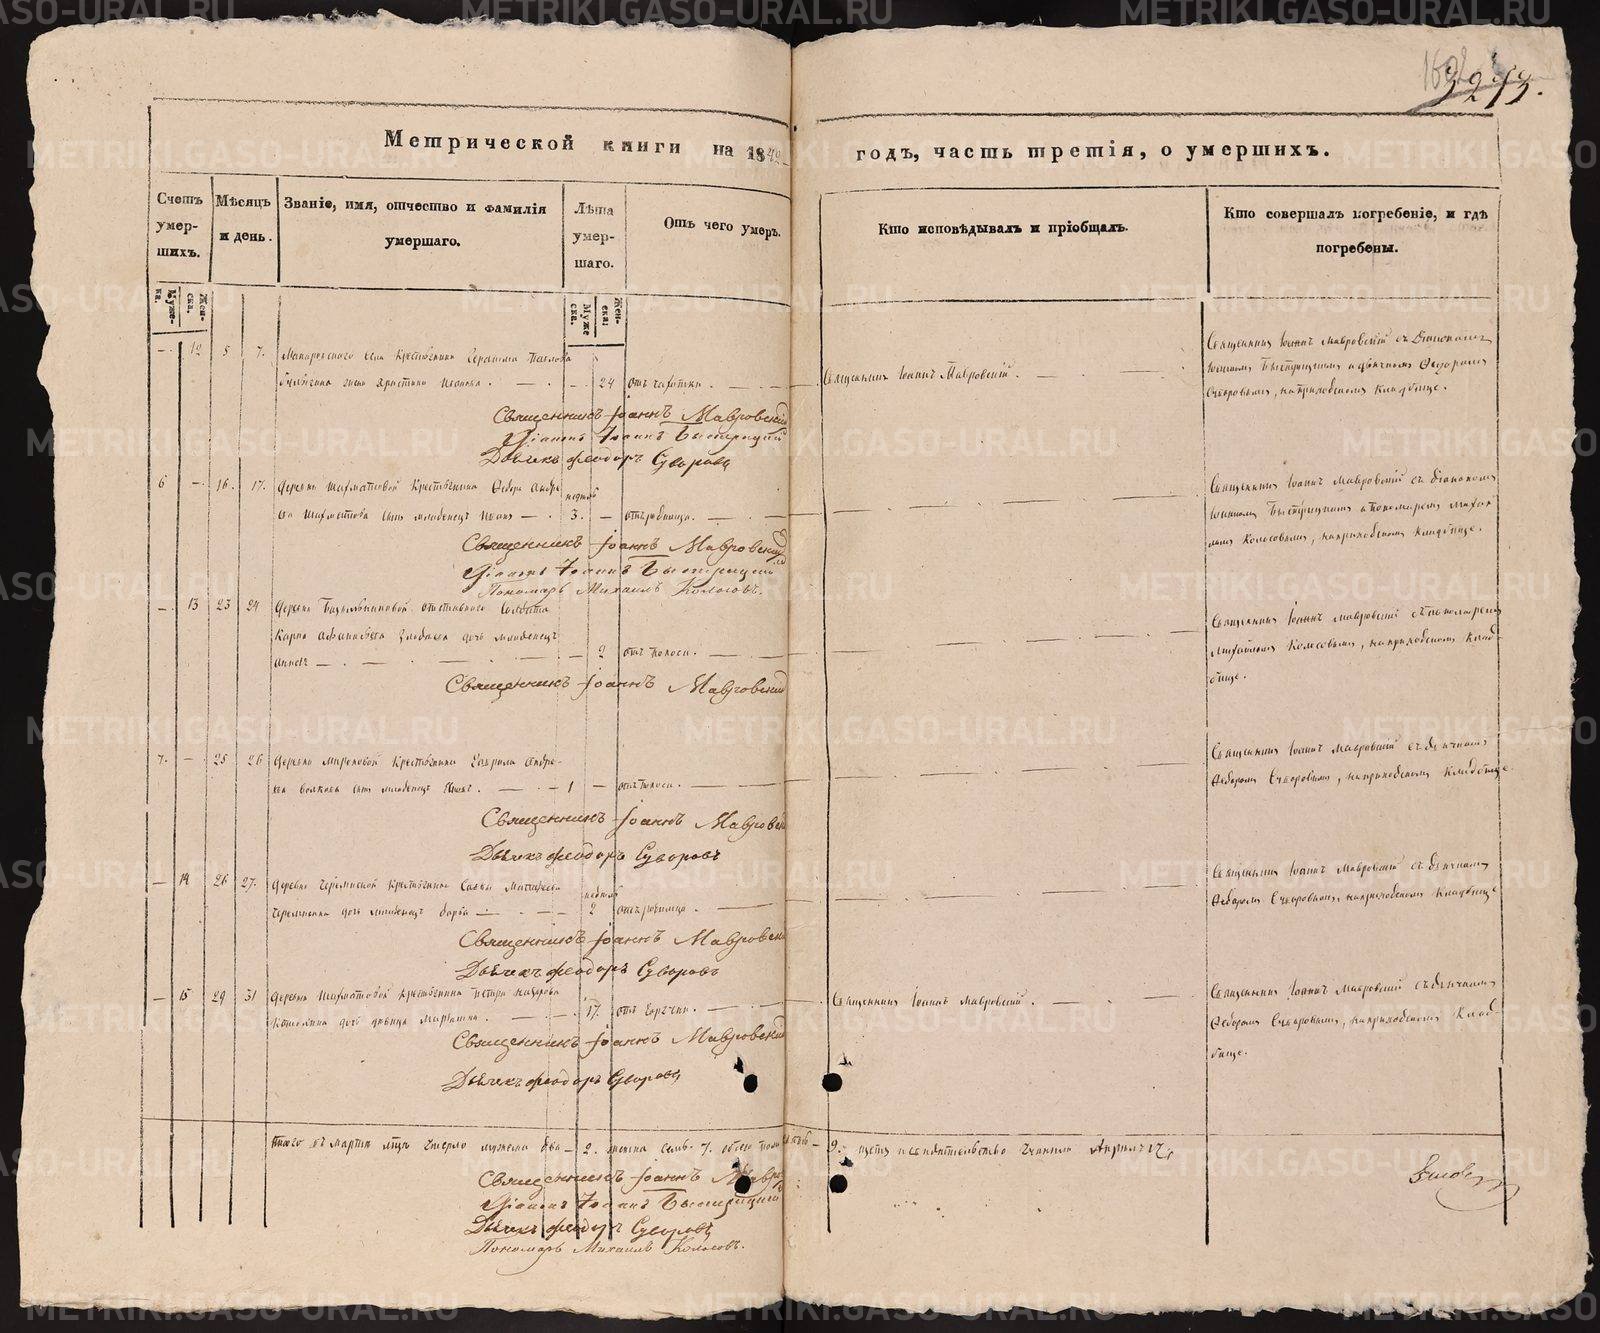 3273.
Метрической книги на 1842 годъ, часть третія, о умершихъ.
Счетъ умер-шихъ.
Мѣсяцъ и день.
Званіе, имя, отчество и фамилія умершаго.
Лѣта умер-шаго.
Отъ чего умеръ.
Кто исповѣдывалъ и пріобщалъ.
Кто совершалъ погребеніе, и гдѣ погребены.
Муже-ска. Жен-ска.
Муже ска. Жен-ска.
— 12 5 7. села Крестьянина Герасима Павлова
жена Христина Иванова. — 24 отъ чахотки.
Священникъ Іоаннъ Мавровскій.
Священникъ Іоаннъ Мавровскій съ Діакономъ
Іоанномъ Быстрицкимъ и дьячкомъ Ѳедоромъ
Суворовымъ, на приходскомъ кладбище.
Священникъ Іоаннъ Мавровскій
Діаконъ Іоаннъ Быстрицкій
Дьячекъ Феодоръ Суворовъ
6 — 16. 17. Деревни Шахматовой Крестьянина Ѳедора Андре
ева Шахматова сынъ младенецъ Иванъ — недѣль 3. — отъ родимца.
Священникъ Іоаннъ Мавровскій съ діакономъ
Іоанномъ Быстрицкимъ и пономаремъ Михаи
ломъ Колосовымъ, на приходскомъ кладбище.
Священникъ Іоаннъ Мавровскій
Діаконъ Іоаннъ Быстрицкій
Пономарь Михаилъ Колосовъ.
— 13 23 24 Деревни отставного Солдата
Карпа дочь младенецъ
Анна — 2 отъ поноса.
Священникъ Іоаннъ Мавровскій съ пономаремъ
Михаиломъ Колосовымъ, на приходскомъ клад-
бище.
Священникъ Іоаннъ Мавровскій
7. — 25 26 Деревни Мироновой Крестьянина Гаврила Андре-
ева Волкова сынъ младенецъ — 1 — отъ поноса.
Священникъ Іоаннъ Мавровскій съ дьячкомъ
Ѳедоромъ Суворовымъ, на приходскомъ кладбище.
Священникъ Іоаннъ Мавровскій
Дьячекъ Феодоръ Суворовъ
— 14 26 27. Деревни Черемиской Крестьянина Савы Матвѣева
дочь младенецъ — недѣль 2 отъ родимца.
Священникъ Іоаннъ Мавровскій съ дьячкомъ
Ѳедоромъ Суворовымъ, на приходскомъ кладбище
Священникъ Іоаннъ Мавровскій
Дьячекъ Феодоръ Суворовъ
— 15 29 31 Деревни Шахматовой Крестьянина Петра Назарова
дочь дѣвица — 17. отъ горячки.
Священникъ Іоаннъ Мавровскій.
Священникъ Іоаннъ Мавровскій съ дьячкомъ
Ѳедоромъ Суворовымъ, на приходскомъ клад-
бище.
Священникъ Іоаннъ Мавровскій
Дьячекъ Феодоръ Суворовъ
Итого въ мартѣ мцѣ умерло мужеска два — 2. женска семь. 7. обоего пола — 9.
Священникъ Іоаннъ Мавровскій
Діаконъ Іоаннъ Быстрицкій
Дьячекъ Феодоръ Суворовъ
Пономарь Михаилъ Колосовъ.
METRIKI.GASO-URAL.RU